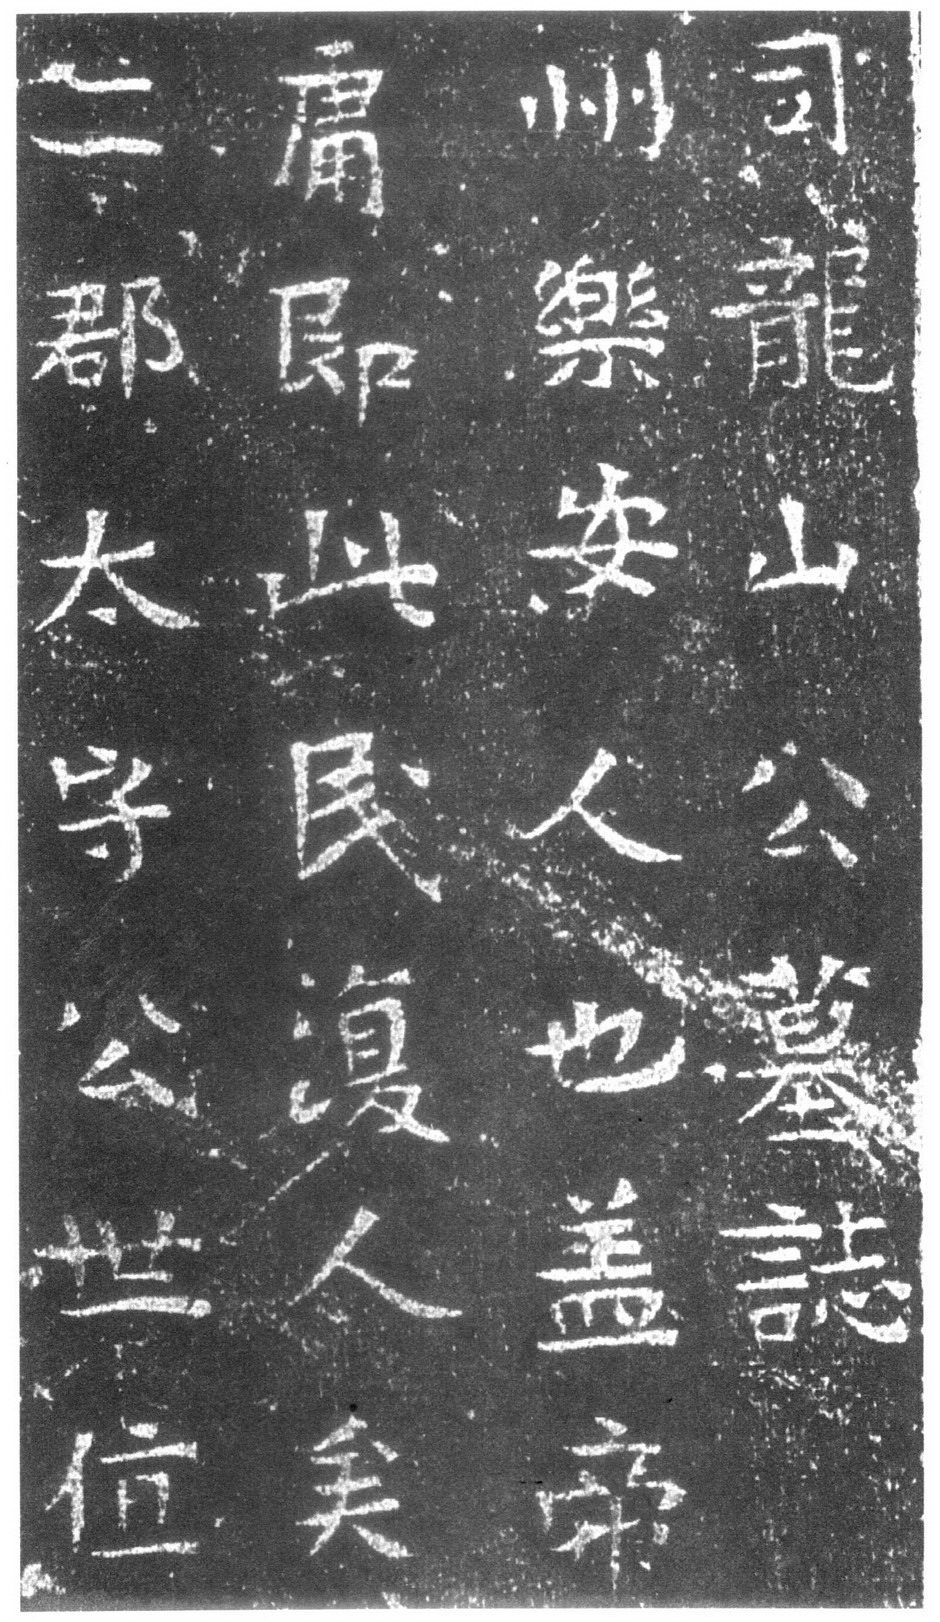 司龍山公墓誌
州樂安人也盖帝
庸即此民復人矣
二郡太守公世值